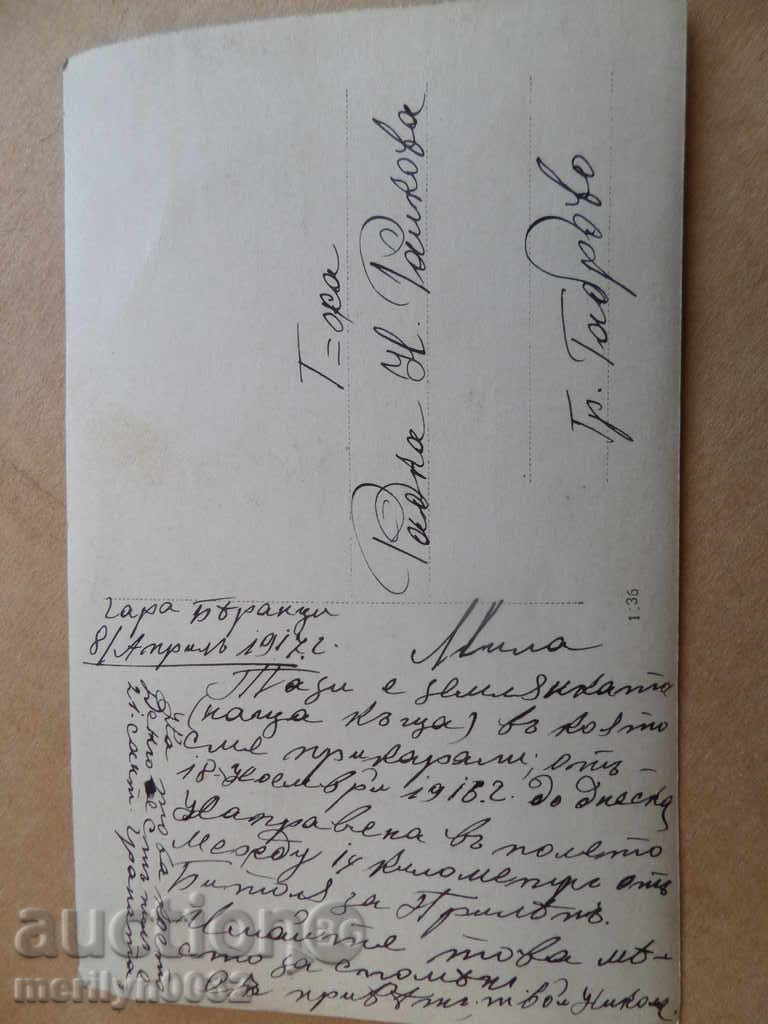 Г=жа
Радка Н. Рашкова
Гр. Габрово
гара Бѣранци
8/Априлъ 1917.г.
Мила
Тази е землянката
(наща кѫща) въ която
сме прикарали, отъ
18-Ноември 1916.г. до днеска
Направена въ полѣто
между 14 километръ отъ
Битоля за Прилѣпъ.
Имайте това мѣ-
сто за споменъ
привѣтъ. твой Никола.
На това место
21. сант. гранати.
1:36
auctions
merilyn0082